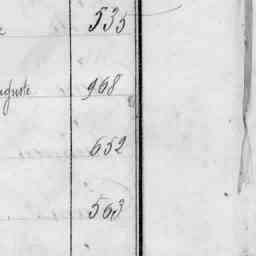 535
968
652
563